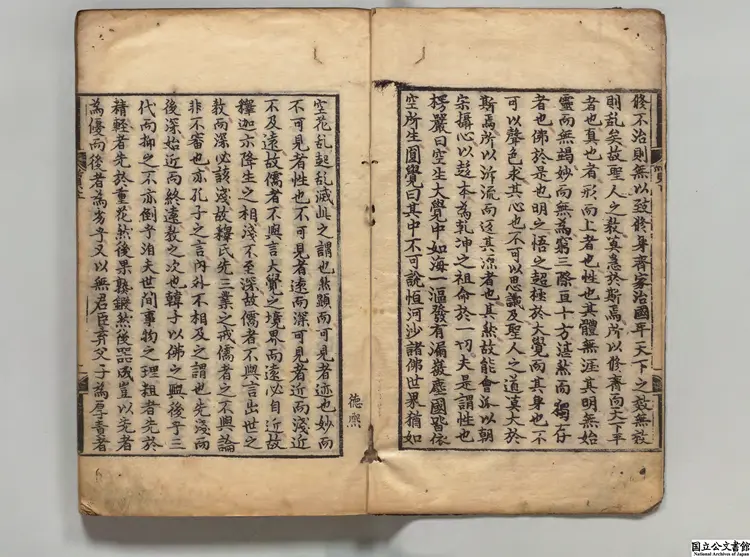 修不治則無以致修身齊家治國平天下之教無
則乱矣故聖人之教莫急於斯焉所以修齊而天下平
者也真也者形而上者也性也其體無涯其明無始
靈而無竭妙而無為窮三際亘十方湛然而獨存
者也佛於是也明之悟之超極於大覺而其身也不
可以聲色求其心也不可以思議及聖人之道莫大於
斯焉所以泝流而返其源者也其然故能會泒以朝
宗攝心以趍本為乾冲之祖命於一切夫是謂性也
楞嚴曰空生大覺中如海一漚發有漏微塵國皆依
空所生圓覺曰其中不可說恒河沙諸佛世界猶如
德熙
空花乱起乱滅此之謂也然顯而可見者迹也妙而
不可見者性也不可見者遠而深可見者近而淺近
不及遠故儒者不與言大覺之境界而遠必自近故
釋迦示降生之相淺不至深故儒者不與言出世之
教而深必該淺故釋氏先三業之戒儒者之不與論
非不審也亦孔子之言內外不相及之謂也先淺而
後深始近而終遠教之次也韓子以佛之興後乎三
代而抑之不亦倒乎洎夫世間事物之理粗者先於
精輕者先於重花然後果熟鍛然後器成豈以先者
為優而後者為劣乎又以無君臣弃父子為厚責者
国立公文書館
National Archives of Japan